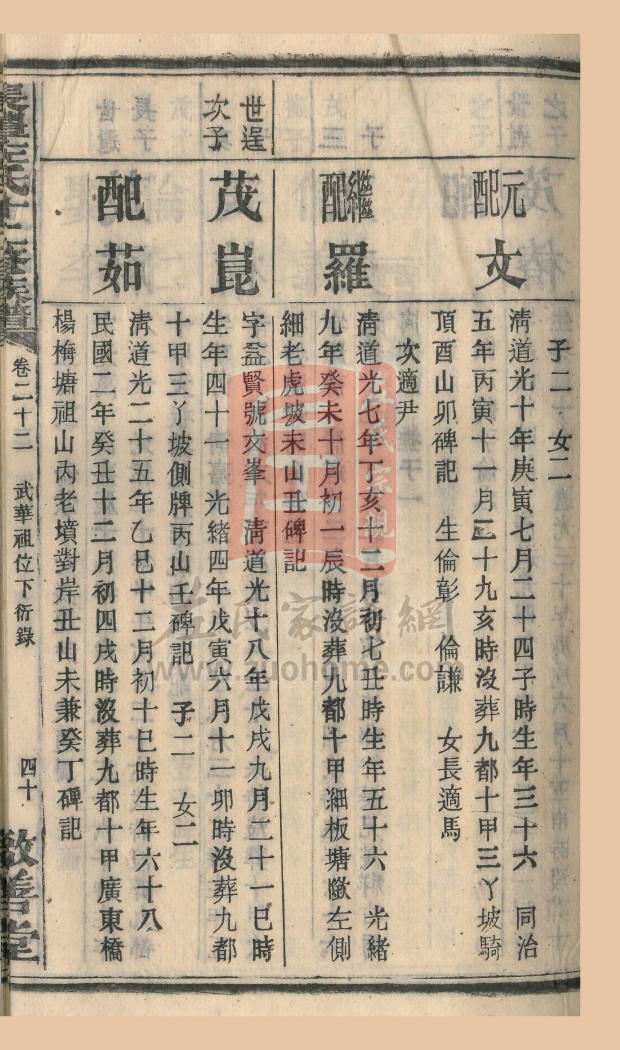 子二 女二
元配 文
清道光十年庚寅七月二十四子時生年三十六 同治
五年丙寅十一月二十九亥時沒葬九都十甲三丫坡騎
頂酉山卯碑記 生倫彰 倫謙 女長適馬
次適尹
繼配 羅
清道光七年丁亥十二月初七丑時生年五十六 光緒
九年癸未十月初一辰時沒葬九都十甲細板塘墩左側
細老虎坡未山丑碑記
世逞次子
茂崑
字益賢號文峯 清道光十八年戊戌九月二十一巳時
生年四十一 光緒四年戊寅六月十一卯時沒葬九都
十甲三丫坡側牌丙山壬碑記 子二 女二
配 茹
清道光二十五年乙巳十二月初十巳時生年六十八
民國二年癸丑十二月初四戌時沒葬九都十甲廣東橋
楊梅塘祖山內老墳對岸丑山未兼癸丁碑記
卷二十二 武華祖位下衍錄 四十
敦善堂
左氏家譜網
www.zuohome.com